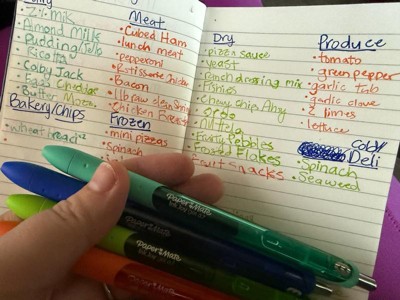 Meat
2% milk
Almond Milk
Pudding/Jello
Ricotta
Coby Jack
Cheddar
Butter
Bakery/Chips
wheat bread
Cubed Ham
lunch meat
pepperoni
Rotisserie
Bacon
1 lb raw
Chicken Breast
Frozen
mini pizzas
Spinach
Dry
pizza sauce
yeast
Ranch dressing mix
Fishies
Chewy Chips Ahoy
Oreo
Nutella
Fruity Pebbles
Frosty Flakes
Fruit Snacks
Produce
tomato
green pepper
garlic tub
garlic clove
2 limes
lettuce
Cold
Deli
Spinach
Seaweed
PaperMate
PaperMate
PaperMate
PaperMate